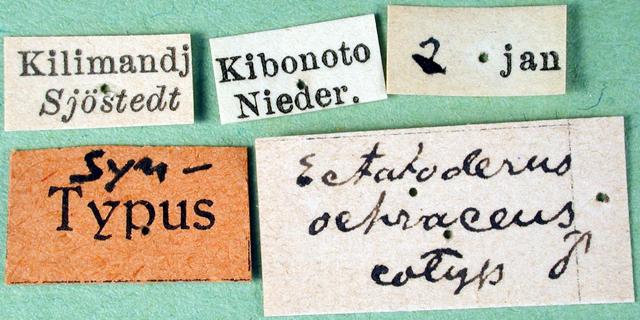 Kilimandj
Sjöstedt
Kibonoto
Nieder.
2 jan
Syn-
Typus
Ectatoderus
ochraceus
cotyp ♂